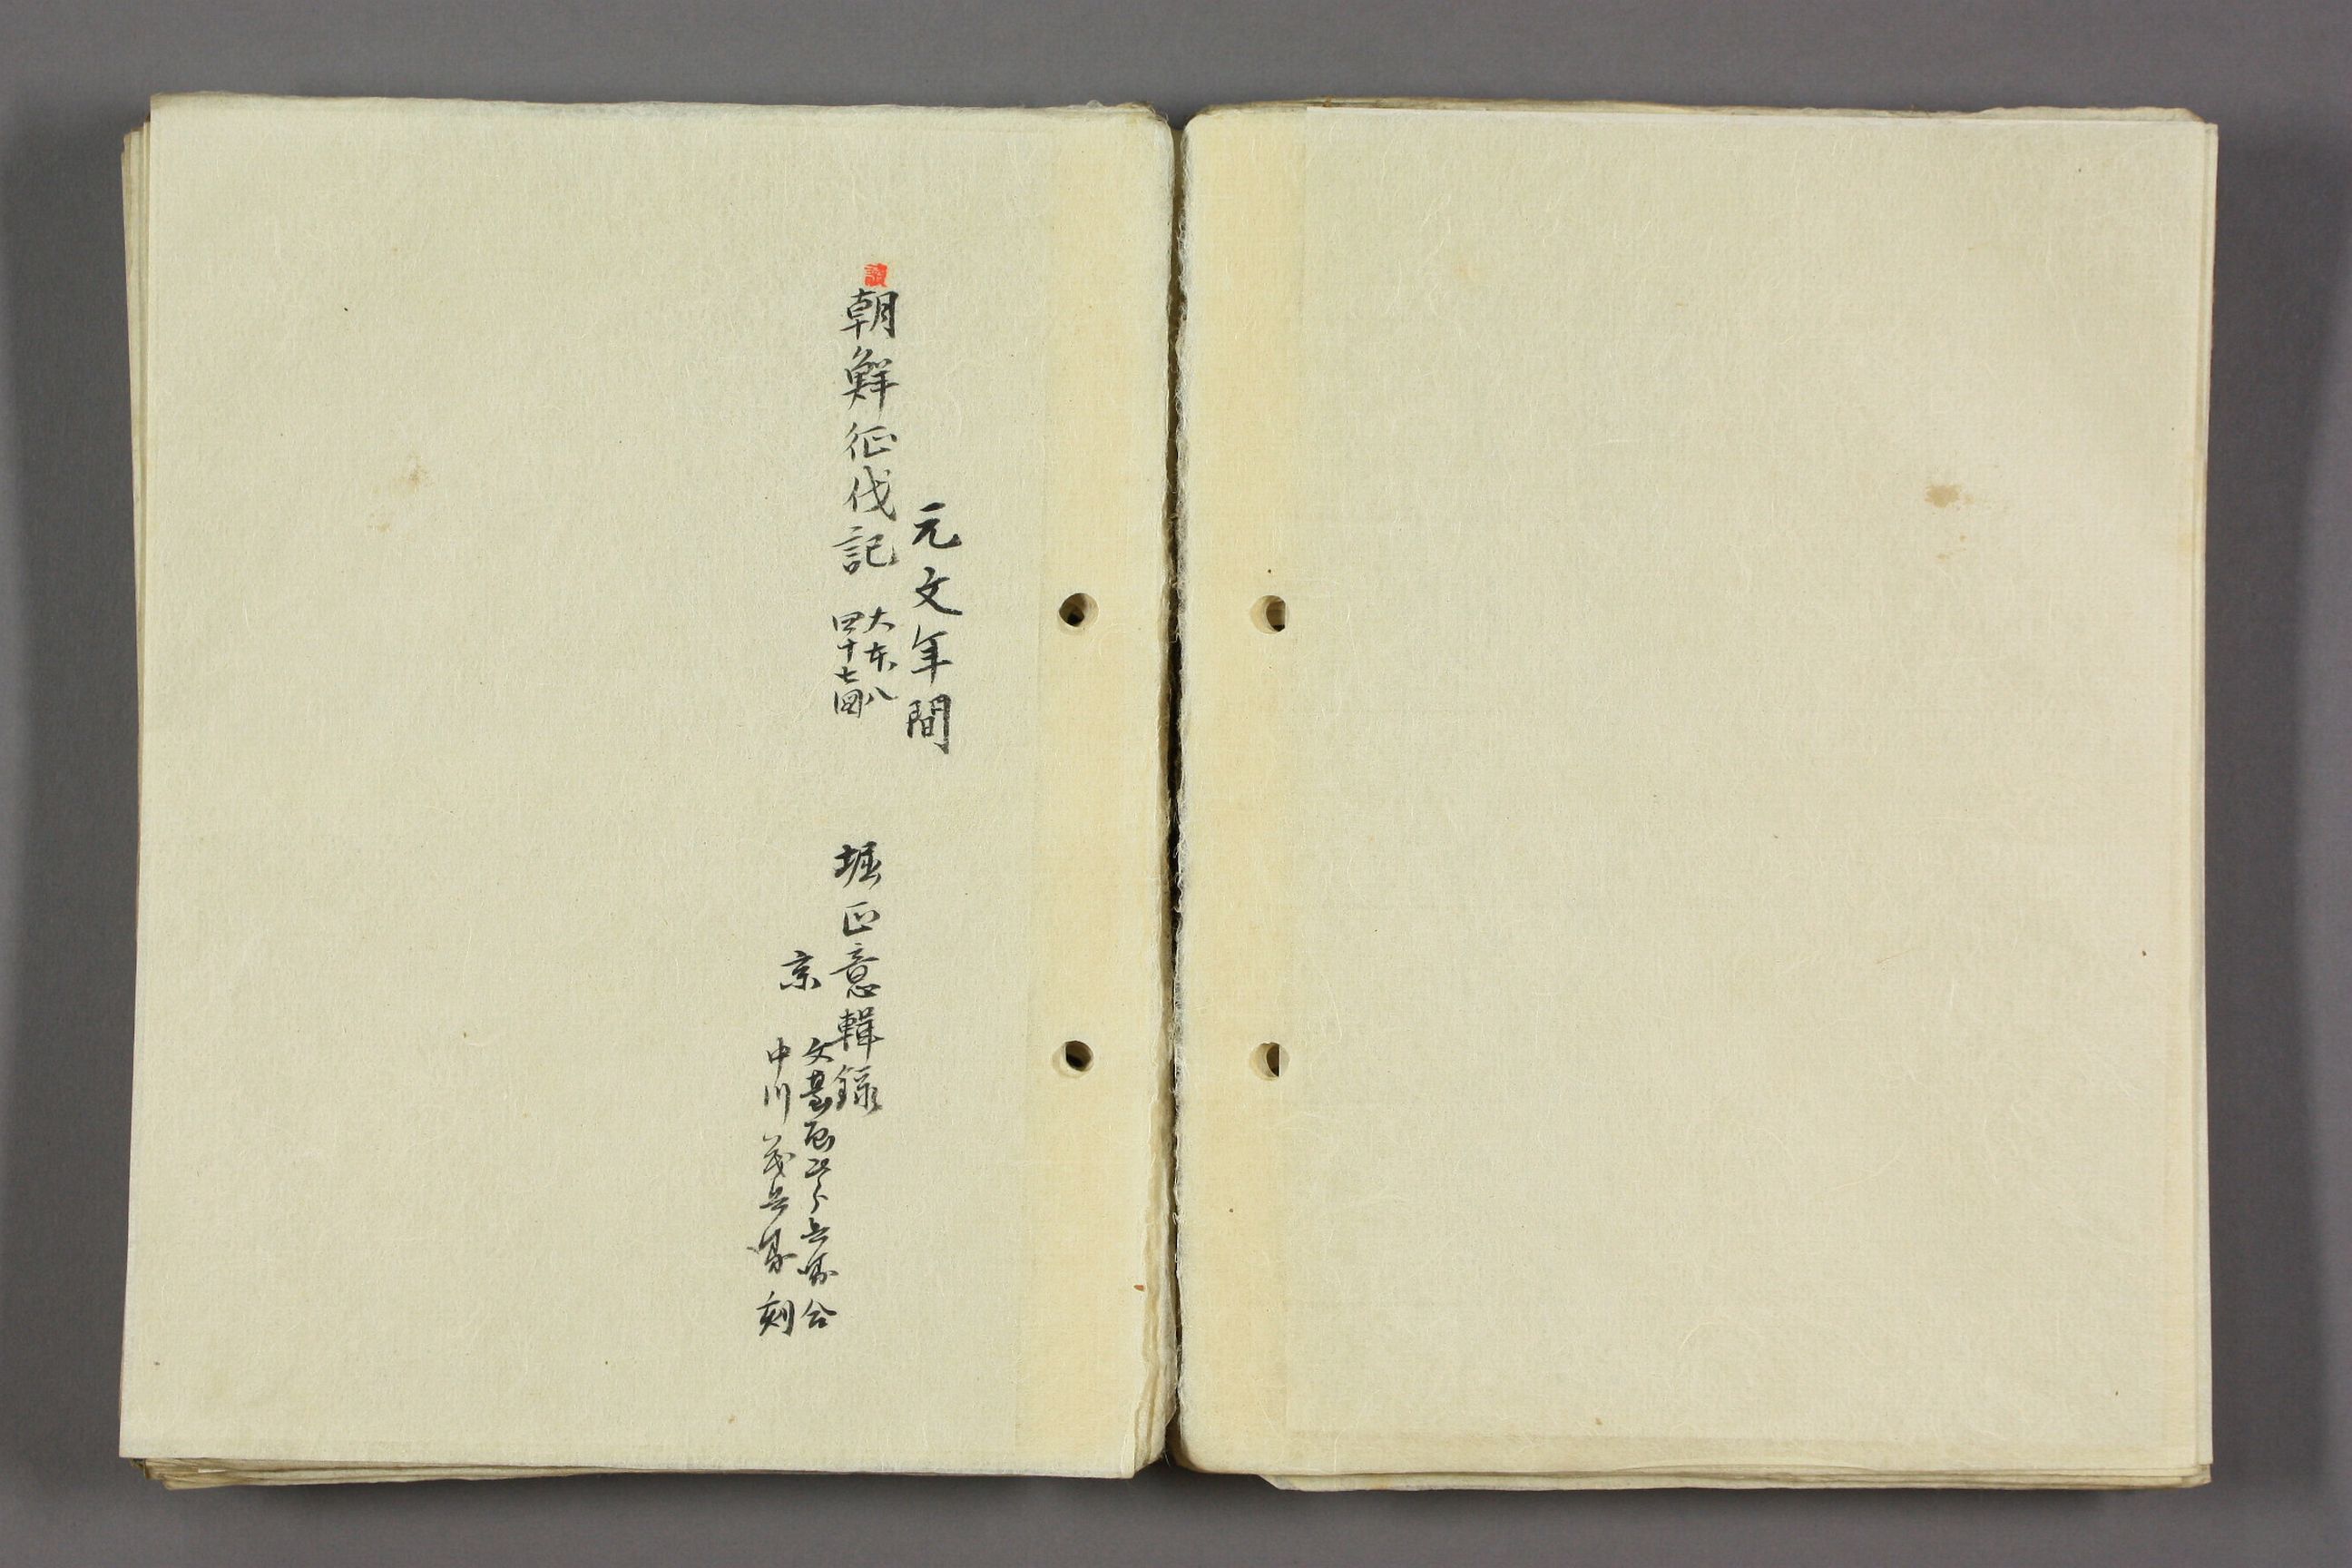 元文年間
朝鮮征伐記
大本八
四十七
堀正意輯録
京
文臺屋治郎兵衛 合
中川茂兵衛 刻